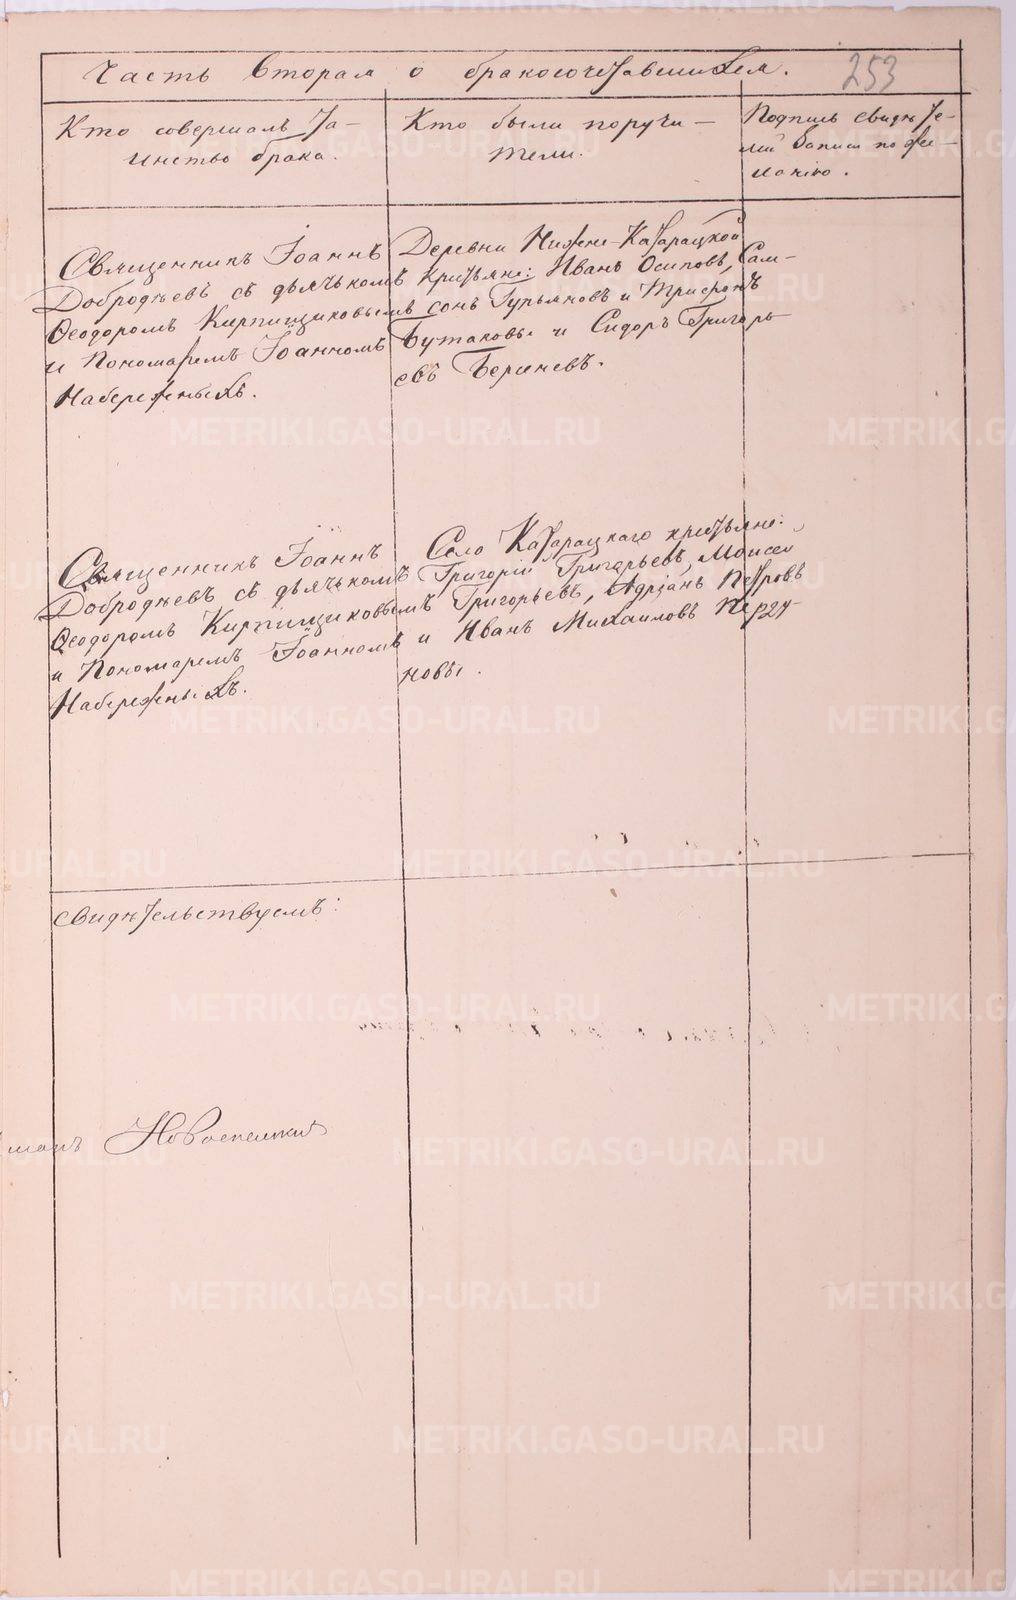 Часть вторая о бракосочетавшихся.
253
Кто совершалъ Та-
инство брака.
Кто были поручи-
тели.
Подпись свидѣте-
лей записи по же-
ланію.
Священникъ Іоаннъ
Добродѣевъ съ дьячькомъ
Ѳеодоромъ Кирпищиковымъ
и Пономаремъ Іоанномъ
Набережныхъ.
Деревни Нижне-Катарацкой
крестьяне: Иванъ Осиповъ, Сам-
сонъ Гурьяновъ и Трифонъ
Бутаковы и Сидоръ Григорь-
евъ
Священникъ Іоаннъ
Добродѣевъ съ дьячькомъ
Ѳеодоромъ Кирпищиковымъ
и Пономаремъ Іоанномъ
Набережныхъ.
Село Катарацкаго крестьяне:
Григорій Григорьевъ, Моисей
Григорьевъ, Адріанъ Петровъ
и Иванъ Михаиловъ Пергу-
новы.
свидѣтельствуемъ:
METRIKI.GASO-URAL.RU